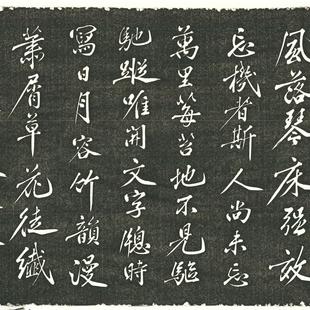 風落琴床強效
忘機者斯人尚未忘
萬里莓苔地不見驅
馳蹤唯開文字窗時
寫日月容竹韻漫
蕭屑草花徒纖